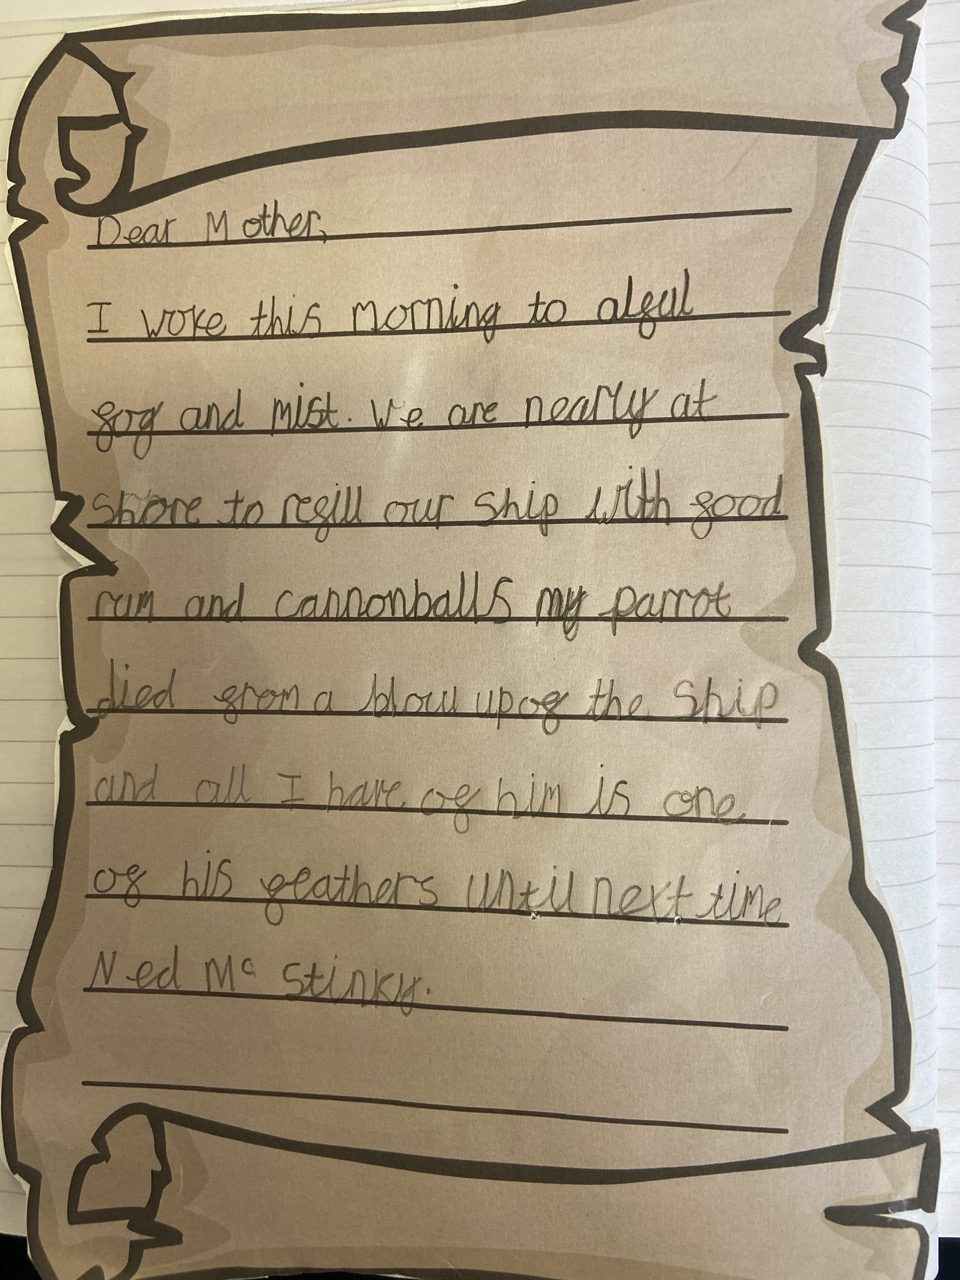 Dear Mother,
I woke this morning to alful
fog and mist. We are nearly at
shore to refill our ship with food
rum and cannonballs my parrot
died from a blow up of the ship
and all I have of him is one
of his feathers until next time
Ned Mc Stinky.